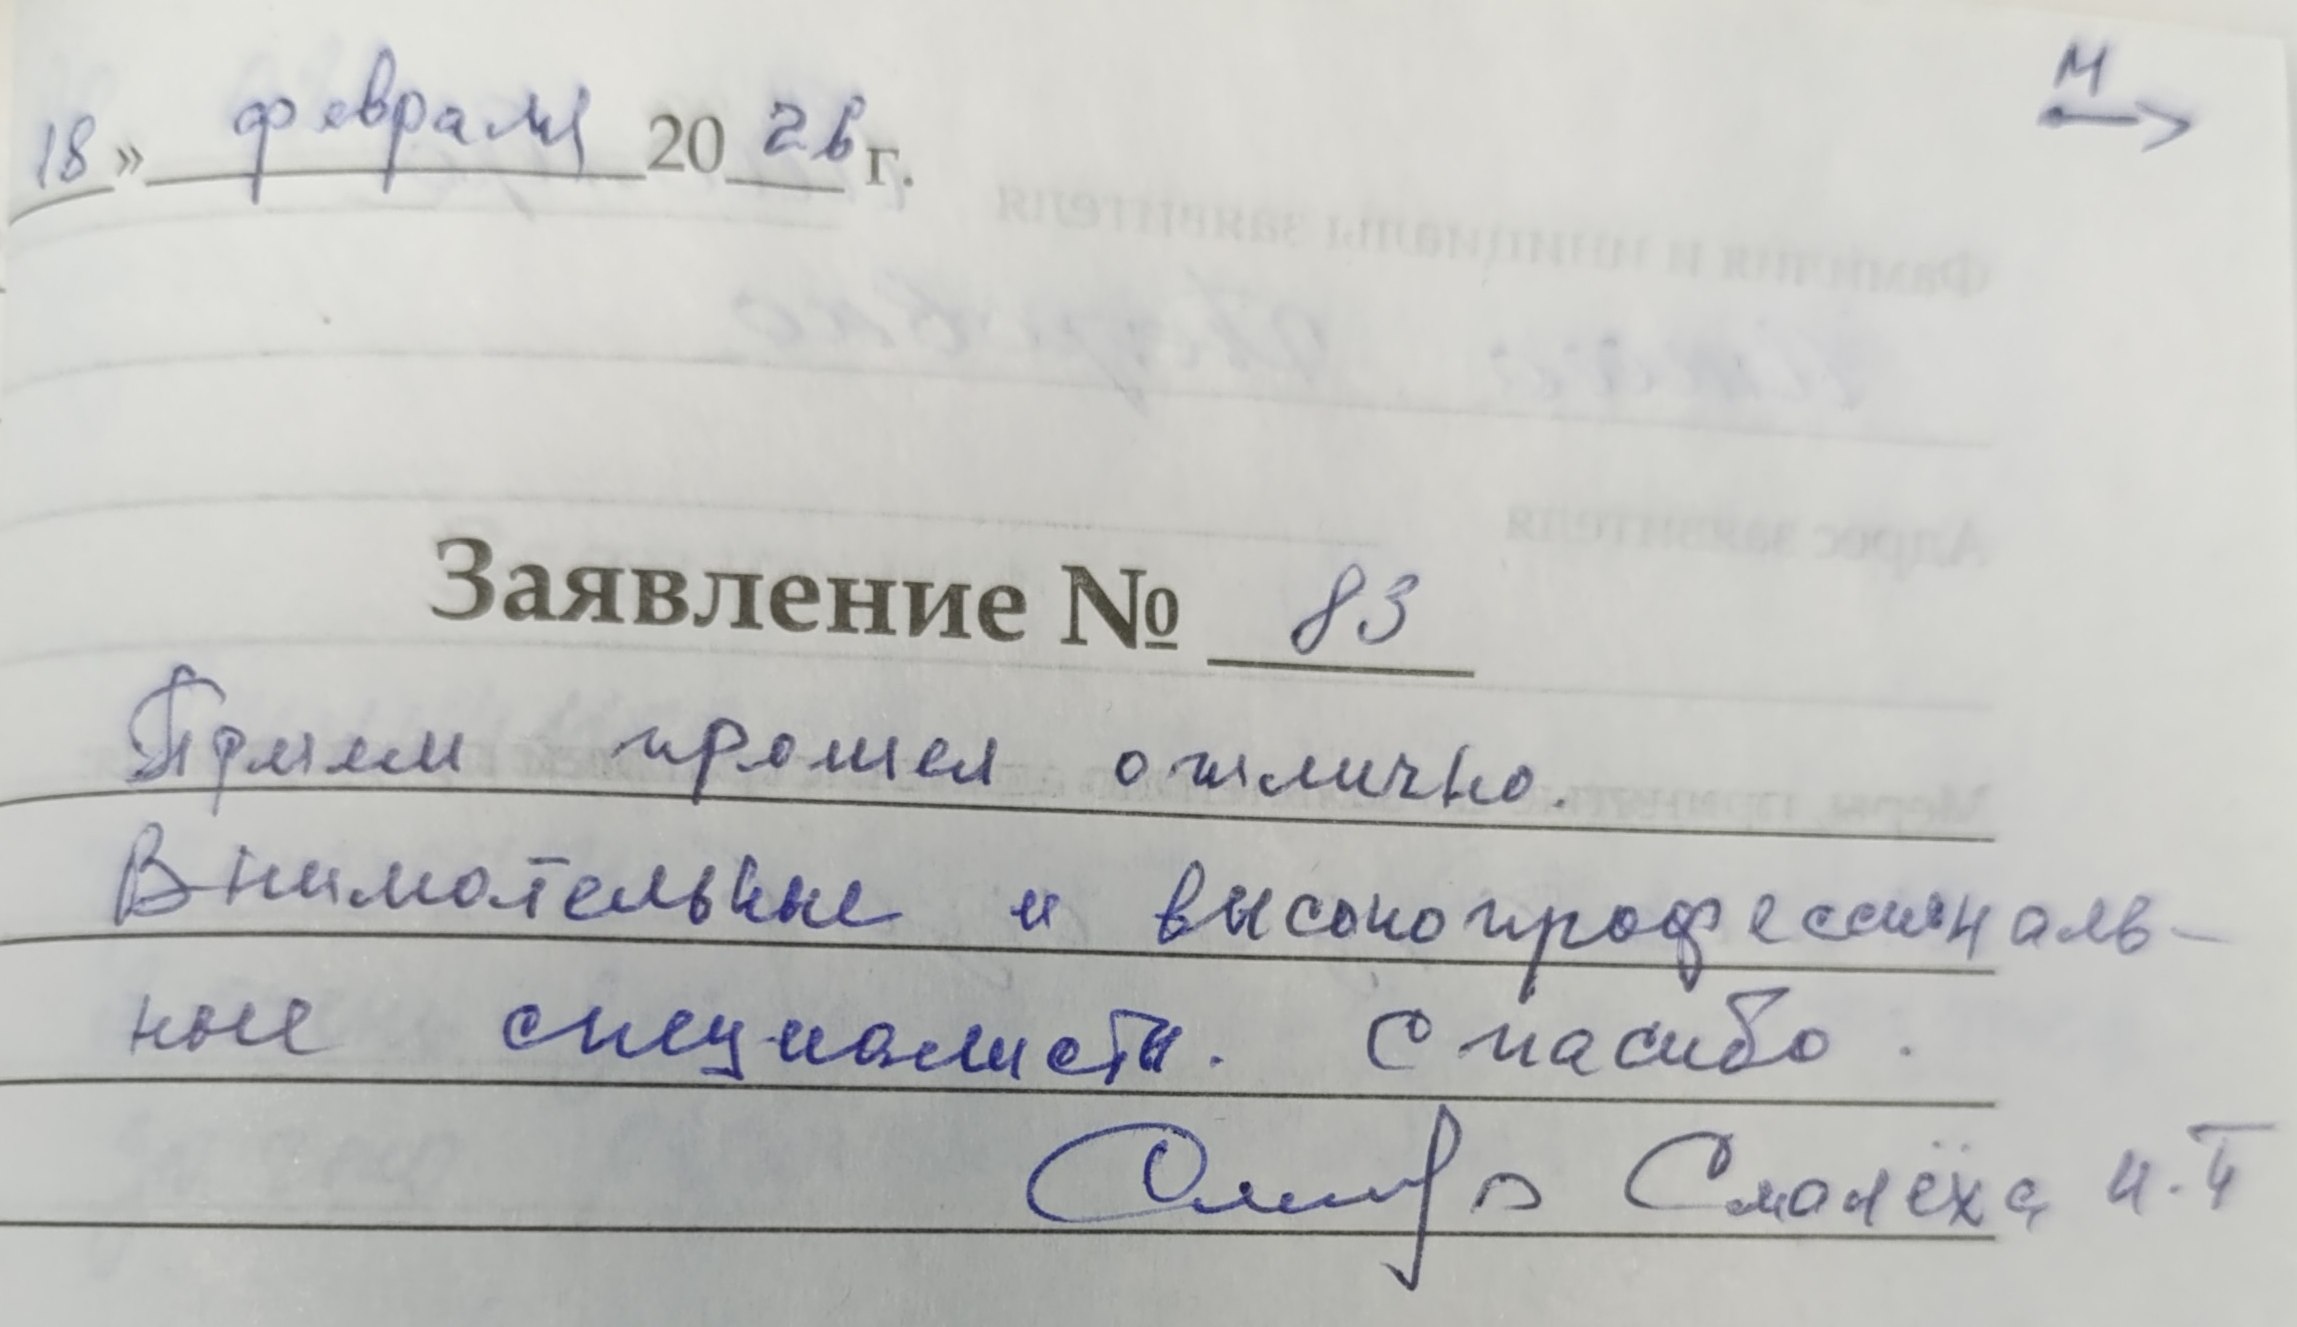 18» февраля 2026 г.
М
Заявление № 83
Прием прошел отлично.
Внимательные и высокопрофессиональ-
ные специалисты. Спасибо.
Смолёха И.